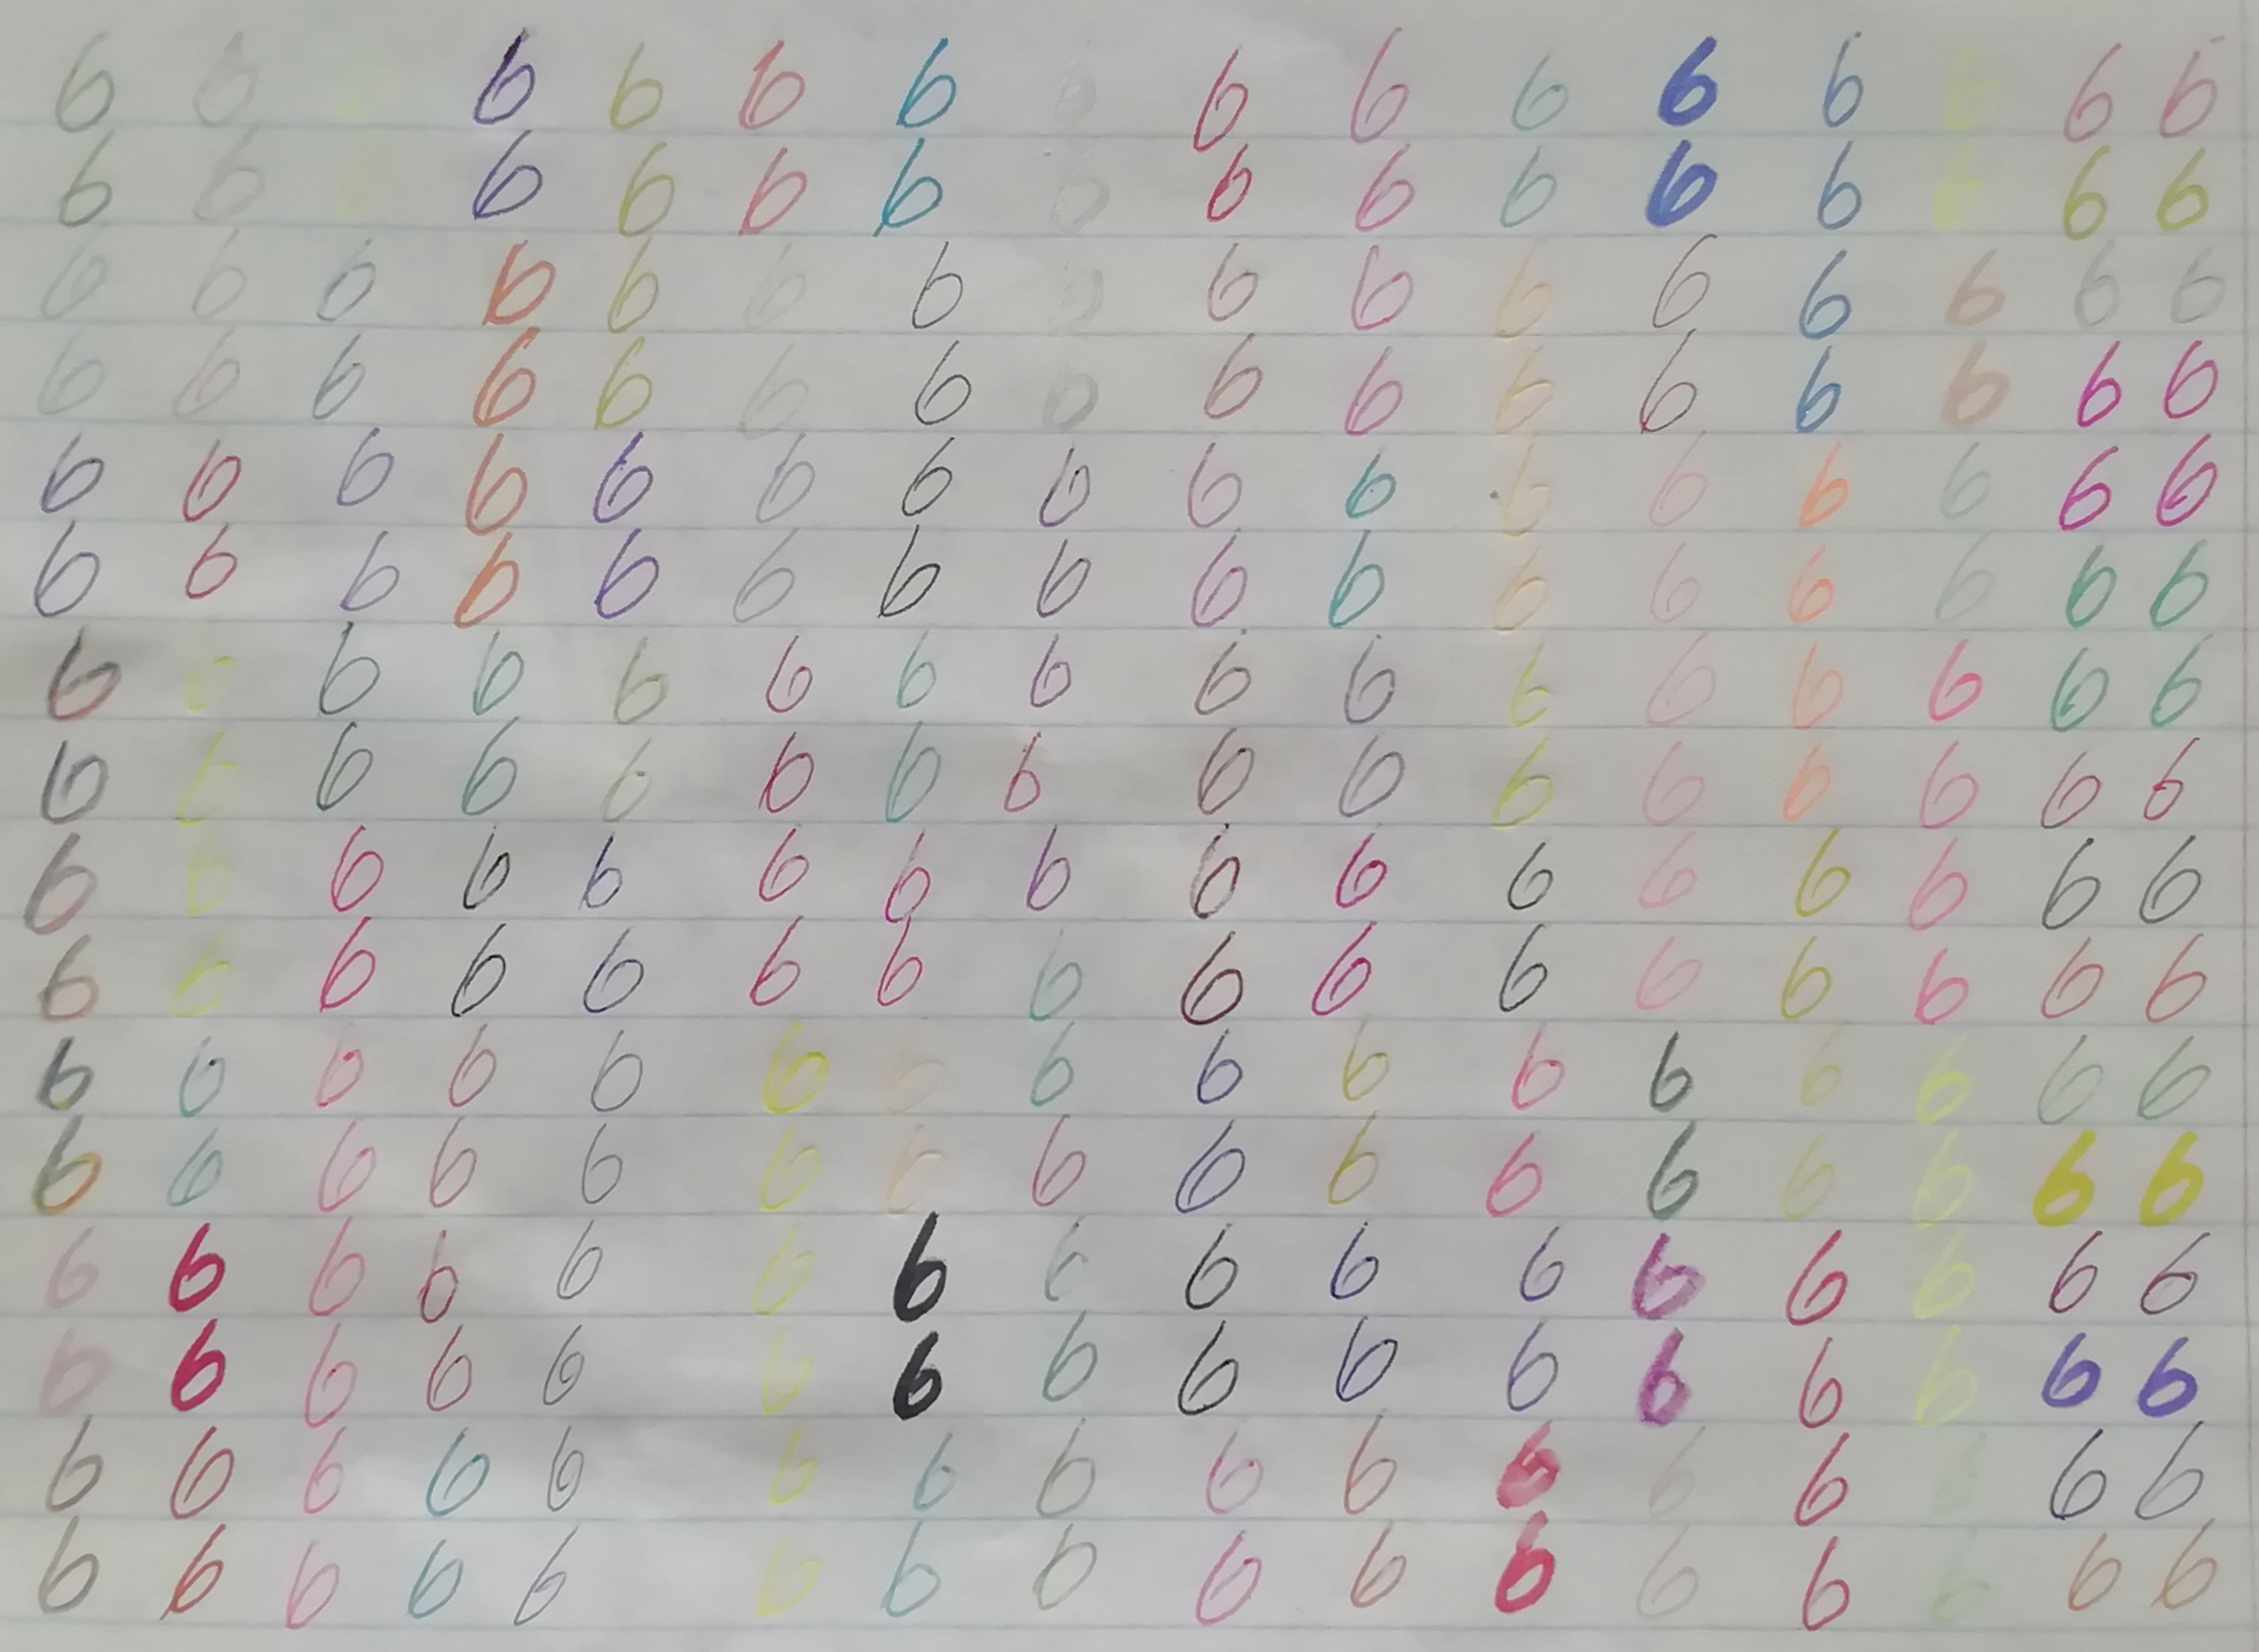 6 6 6 6 6 6 6 6 6 6 6 6 6 6 6 6
6 6 6 6 6 6 6 6 6 6 6 6 6 6 6 6
6 6 6 6 6 6 6 6 6 6 6 6 6 6 6 6
6 6 6 6 6 6 6 6 6 6 6 6 6 6 6 6
6 6 6 6 6 6 6 6 6 6 6 6 6 6 6 6
6 6 6 6 6 6 6 6 6 6 6 6 6 6 6 6
6 6 6 6 6 6 6 6 6 6 6 6 6 6 6 6
6 6 6 6 6 6 6 6 6 6 6 6 6 6 6 6
6 6 6 6 6 6 6 6 6 6 6 6 6 6 6 6
6 6 6 6 6 6 6 6 6 6 6 6 6 6 6 6
6 6 6 6 6 6 6 6 6 6 6 6 6 6 6 6
6 6 6 6 6 6 6 6 6 6 6 6 6 6 6 6
6 6 6 6 6 6 6 6 6 6 6 6 6 6 6 6
6 6 6 6 6 6 6 6 6 6 6 6 6 6 6 6
6 6 6 6 6 6 6 6 6 6 6 6 6 6 6 6
6 6 6 6 6 6 6 6 6 6 6 6 6 6 6 6